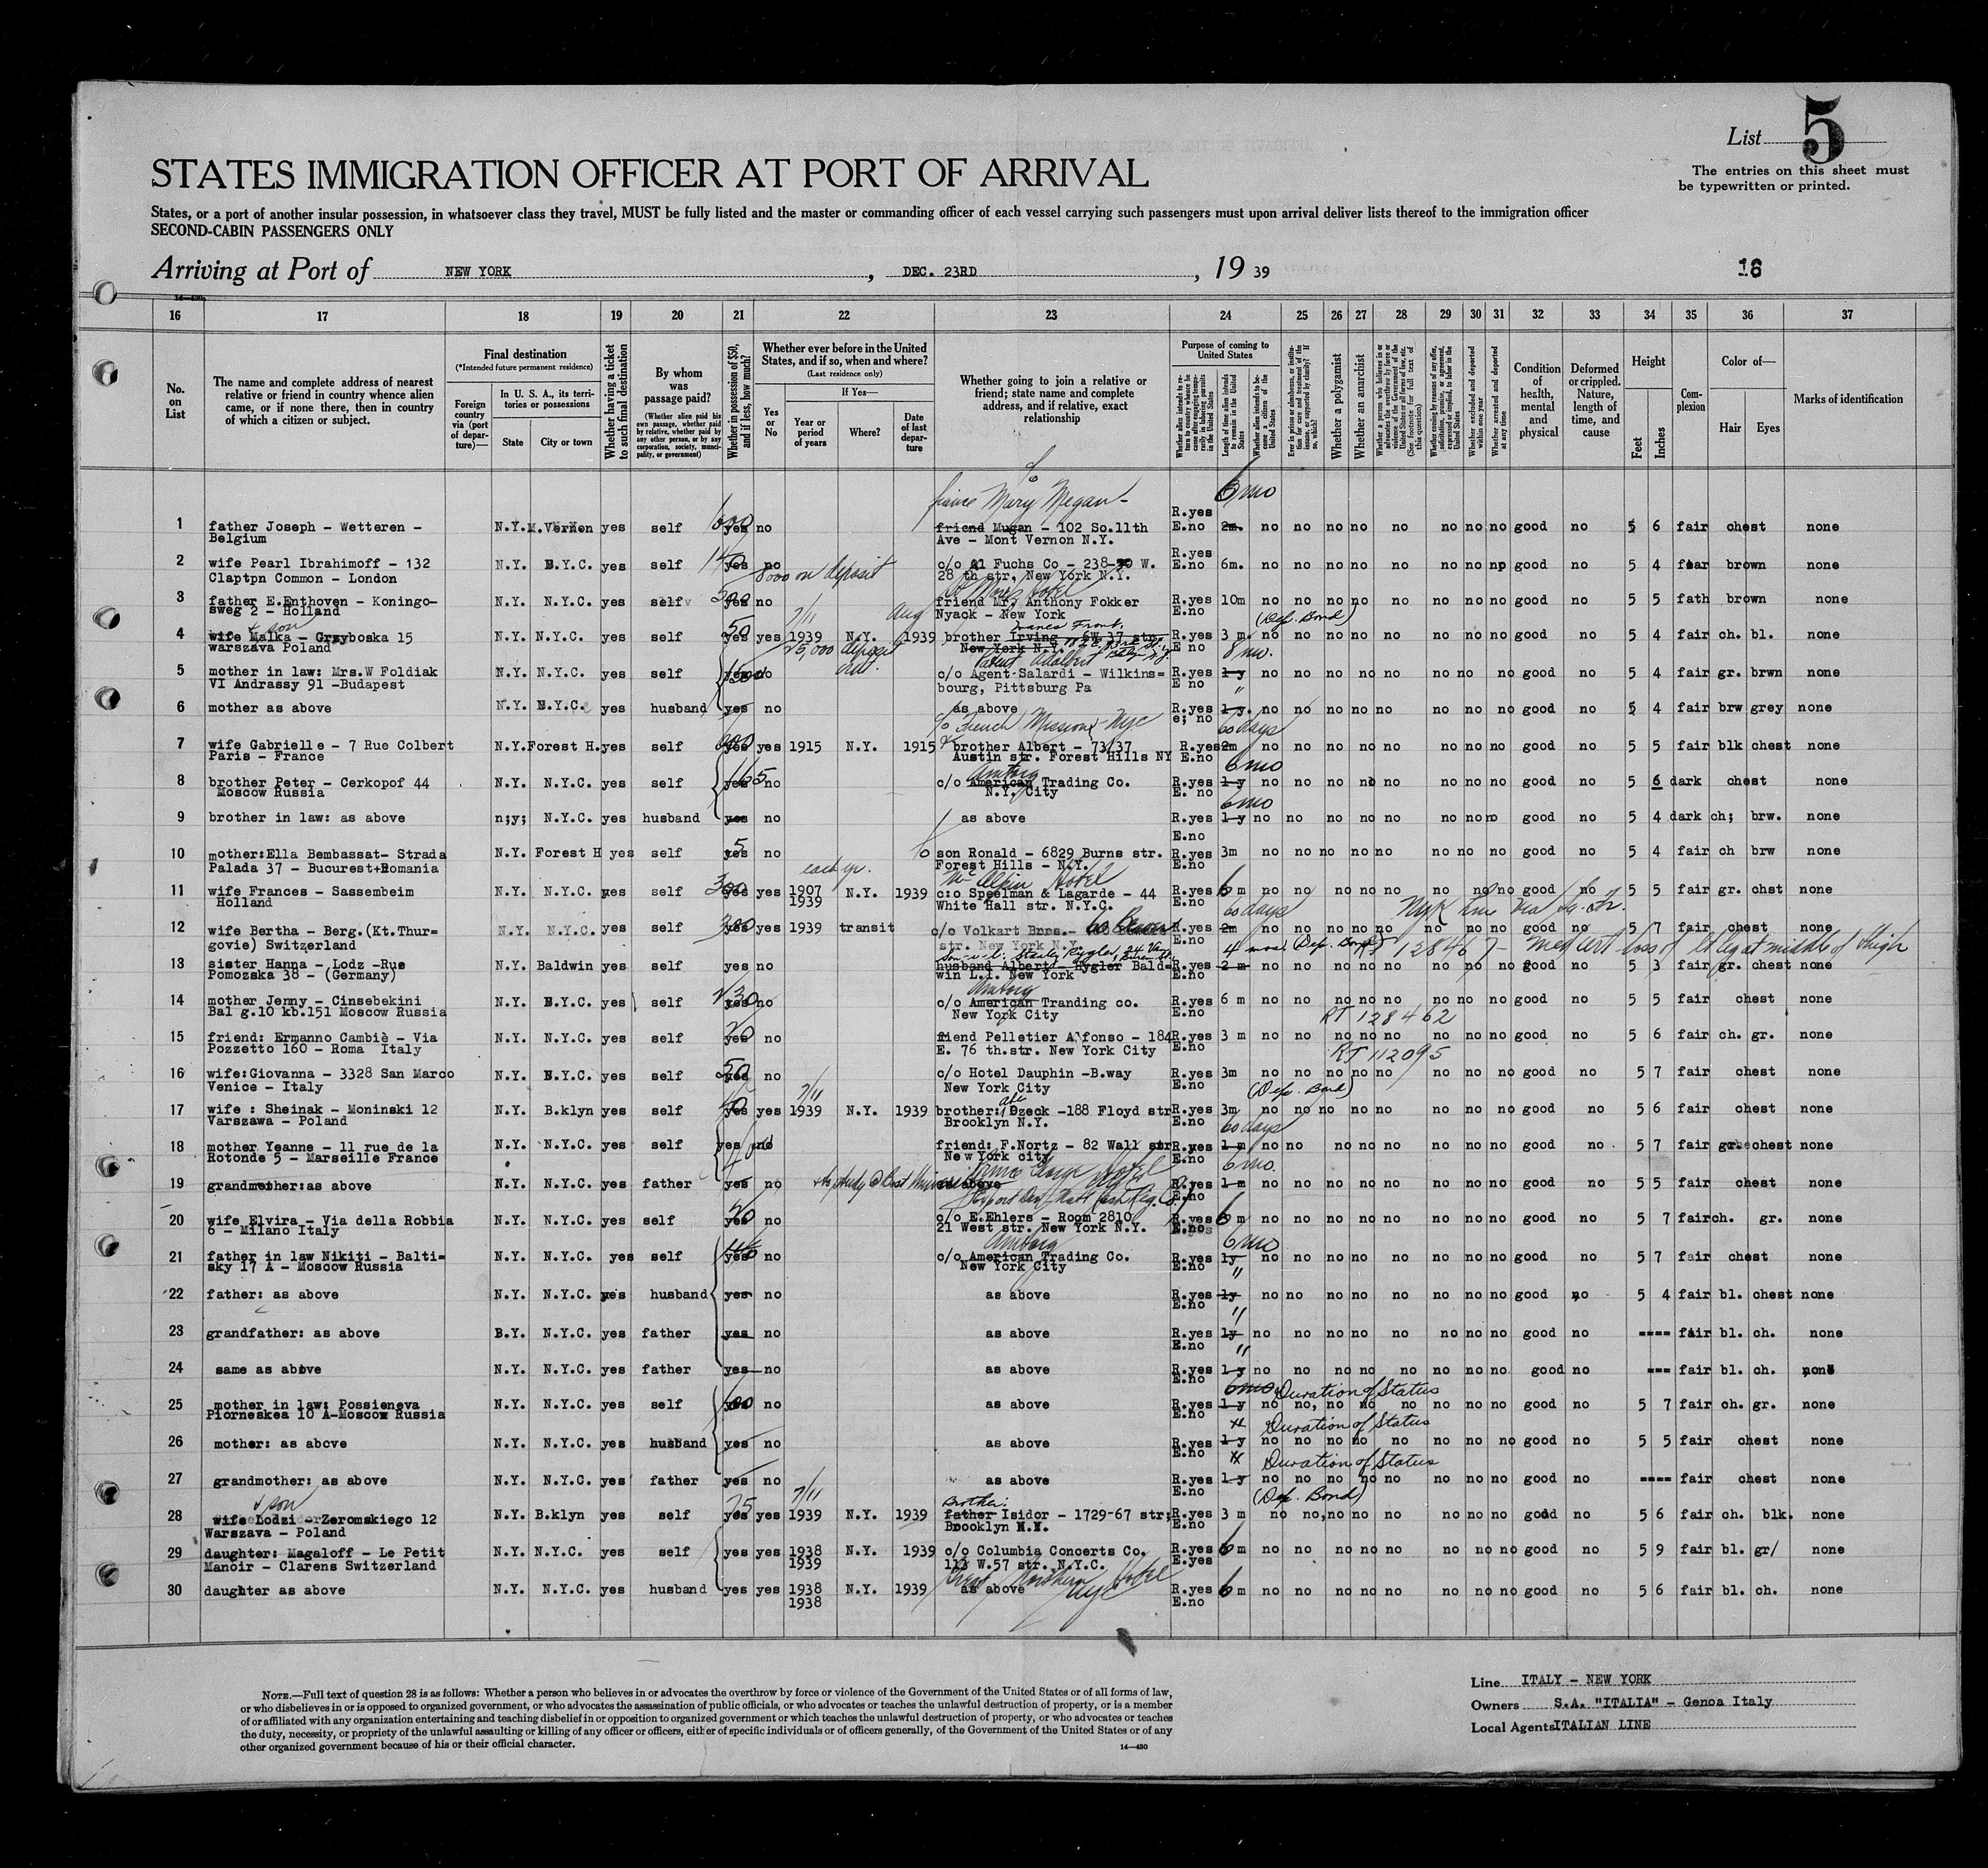 List 5
The entries on this sheet must
be typewritten or printed.
STATES IMMIGRATION OFFICER AT PORT OF ARRIVAL
States, or a port of another insular possession, in whatsoever class they travel, MUST be fully listed and the master or commanding officer of each vessel carrying such passengers must upon arrival deliver lists thereof to the immigration officer
SECOND-CABIN PASSENGERS ONLY
Arriving at Port of NEW YORK, DEC. 23RD, 19 39
16
14—430
16 17 18 19 20 21 22 23 24 25 26 27 28 29 30 31 32 33 34 35 36 37
No. on List
The name and complete address of nearest relative or friend in country whence alien came, or if none there, then in country of which a citizen or subject.
Final destination
(*Intended future permanent residence)
Foreign country via (port of departure)—
In U. S. A., its territories or possessions
State
City or town
Whether having a ticket to such final destination
By whom was passage paid?
(Whether alien paid his own passage, whether paid by relative, whether paid by any other person, or by any corporation, society, municipality, or government)
Whether in possession of $50, and if less, how much?
Whether ever before in the United States, and if so, when and where?
(Last residence only)
Yes or No
If Yes—
Year or period of years
Where?
Date of last departure
Whether going to join a relative or friend; state name and complete address, and if relative, exact relationship
Purpose of coming to United States
Length of time alien intends to remain in the United States
Whether alien intends to become a citizen of the United States
Whether a polygamist
Whether an anarchist
Whether excluded and deported within one year
Whether arrested and deported at any time
Condition of health, mental and physical
Deformed or crippled. Nature, length of time, and cause
Height
Feet
Inches
Complexion
Color of—
Hair
Eyes
Marks of identification
6 mo
fiance Mary Megan-
1 father Joseph - Wetteren - N.Y. M.Vernon yes self yes no friend Mugan - 102 So.11th R.yes E.no 2m. no no no no no no no no good no 5 6 fair chest none
Belgium Ave - Mont Vernon N.Y.
2 wife Pearl Ibrahimoff - 132 N.Y. N.Y.C. yes self yes no c/o Al Fuchs Co - 238-30 W. R.yes E.no 6m. no no no no no no no no good no 5 4 fair brown none
Claptpn Common - London 8000 on deposit 28 th str. New York N.Y.
3 father E.Enthoven - Koningo- N.Y. N.Y.C. yes self yes no friend Mr. Anthony Fokker R.yes 10m no no no no no no no no good no 5 5 fath brown none
sweg 2 - Holland Nyack - New York E.no
+ son 7/11 Aug (Dep. Bond)
4 wife Malka - Grzyboska 15 N.Y. N.Y.C. yes self 50 yes yes 1939 N.Y. 1939 brother Irving - 6W 37 str. R.yes 3 m. no no no no no no no no good no 5 4 fair ch. bl. none
warszava Poland New York N.Y. E no
25,000 deposit 8 mo.
5 mother in law: Mrs.W Foldiak N.Y. N.Y.C. yes self yes no c/o Agent Salardi - Wilkins= R.yes 1 y no no no no no no no no good no 5 4 fair gr. brwn none
VI Andrassy 91 -Budapest bourg, Pittsburg Pa E no
6 mother as above N.Y. N.Y.C. yes husband yes no as above R.yes 1 y. no no no no no no no no good no 5 4 fair brw grey none
e; no
c/o French Mission - Nyc 60 days
7 wife Gabrielle - 7 Rue Colbert N.Y. Forest H. yes self yes yes 1915 N.Y. 1915 brother Albert - 73/37 R.yes 2m no no no no no no no no good no 5 5 fair blk chest none
Paris - France Austin str. Forest Hills NY E.no
Amtorg 6 mo
8 brother Peter - Cerkopof 44 N.Y. N.Y.C. yes self yes no c/o American Trading Co. R.yes 1 y no no no no no no no no good no 5 6 dark chest none
Moscow Russia N.Y. City E. no
6 mo
9 brother in law: as above n;y; N.Y.C. yes husband yes no as above R.yes 1 y no no no no no no no no good no 5 4 dark ch; brw. none
E.no
10 mother:Ella Bembassat- Strada N.Y. Forest H yes self 5 yes no son Ronald - 6829 Burns str. R.yes 3m no no no no no no no no good no 5 4 fair ch brw none
Palada 37 - Bucurest+Romania Forest Hills - N.Y. E.no
each yr. Mc Alpin Hotel
11 wife Frances - Sassembeim N.Y. N.Y.C. yes self 300 yes yes 1907 N.Y. 1939 c:o Speelman & Lagarde - 44 R.yes 6 m no no no no no no no no good no 5 5 fair gr. chst none
Holland 1939 White Hall str. N.Y.C. E.no
60 days NYK Line Via
12 wife Bertha - Berg.(Kt.Thur= N.Y. N.Y.C. yes self 300 yes yes 1939 transit c/o Volkart Bros.- R.yes 2m no no no no no no no no good no 5 7 fair chest none
govie) Switzerland str. New York N.Y. E.no
4 mos. (Dep. Bond) RT 128467 - Med cert loss of lt leg at middle of thigh
13 sister Hanna - Lodz -Rue N.Y. Baldwin yes self yes no husband Albert - Rygler Bald= R.yes 2 m no no no no no no no no good no 5 3 fair gr. chest none
Pomozska 38 - (Germany) win L.I. New York E.no
Amtorg
14 mother Jenny - Cinsebekini N.Y. N.Y.C. yes self yes no c/o American Tranding co. R.yes 6 m no no no no no no no no good no 5 5 fair chest none
Bal g.10 kb.151 Moscow Russia New York City E.no
RT 128462
15 friend: Ermanno Cambiè - Via N.Y. N.Y.C. yes self 20 yes no fiend Pelletier Alfonso - 184 R.yes 3 m no no no no no no no no good no 5 6 fair ch. gr. none
Pozzetto 160 - Roma Italy E. 76 th.str. New York City E.no
RT 112095
16 wife:Giovanna - 3328 San Marco N.Y. N.Y.C. yes self 50 yes no c/o Hotel Dauphin -B.way R.yes 3m no no no no no no no no good no 5 7 fair chest none
Venice - Italy New York City E.no
7/11 (Dep. Bond)
17 wife : Sheinak - Moninski 12 N.Y. B.klyn yes self yes yes 1939 N.Y. 1939 brother: Dzeck -188 Floyd str R.yes 3m no no no no no no no no good no 5 6 fair chest none
Varszawa - Poland Brooklyn N.Y. E.no
60 days
18 mother Yeanne - 11 rue de la N.Y. N.Y.C. yes self yes no friend: F.Nortz - 82 Wall str R.yes 1 m no no no no no no no no good no 5 7 fair chest none
Rotonde 5 - Marseille France New York city E.no
6 mo.
19 grandmother:as above N.Y. N.Y.C. yes father yes no as above R.yes 1 m no no no no no no no no good no 5 5 fair chest none
E.no
20 wife Elvira - Via della Robbia N.Y. N.Y.C. yes self 20 yes no c/o E.Ehlers - Room 2810 R.yes 6 m no no no no no no no no good no 5 7 fair ch. gr. none
6 - Milano Italy 21 West str. New York N.Y. E.no
Amtorg 6 mo
21 father in law Nikiti - Balti= N.Y. N.Y.C. yes self yes no c/o American Trading Co. R.yes 1y no no no no no no no no good no 5 7 fair chest none
sky 17 A - Moscow Russia New York City E.no
"
22 father: as above N.Y. N.Y.C. yes husband yes no as above R.yes 1y no no no no no no no no good no 5 4 fair bl. chest none
E.no "
23 grandfather: as above B.Y. N.Y.C. yes father yes no as above R.yes 1y no no no no no no no no good no ---- fair bl. ch. none
E.no "
24 same as above N.Y. N.Y.C. yes father yes no as above R.yes 1 y no no no no no no no no good no --- fair bl. ch. none
E.no
6 mo Duration of Status
25 mother in law: Possieneva N.Y. N.Y.C. yes self as above R.yes 1 y no no, no no no no no no good no 5 7 fair ch. gr. none
Piorneskea 10 A-Moscow Russia E.no
Duration of Status
26 mother: as above N.Y. N.Y.C. yes husband yes no as above R.yes 1 y no no no no no no no no good no 5 5 fair chest none
E.no
Duration of Status
27 grandmother: as above N.Y. N.Y.C. yes father yes no as above R.yes 1 y no no no no no no no no good no ---- fair chest none
E.no
+ son 7/11 Brother: (Dep. Bond)
28 wife Lodzi - Zeromskiego 12 N.Y. B.klyn yes self 75 yes yes 1939 N.Y. 1939 father Isidor - 1729-67 str; R.yes 3 m no no, no no no no no no good no 5 6 fair ch. blk. none
Warszava - Poland Brooklyn N.Y. E.no
29 daughter: Magaloff - Le Petit N.Y. N.Y.C. yes self yes yes 1938 N.Y. 1939 c/o Columbia Concerts Co. R.yes 6 m no no no no no no no no good no 5 9 fair bl. gr/ none
Manoir - Clarens Switzerland 1939 113 W.57 str. N.Y.C. E.yes
Great Northern Hotel nyc
30 daughter as above N.Y. N.Y.C. yes husband yes yes 1938 N.Y. 1939 as above R.yes 6 m no no no no no no no no good no 5 6 fair bl. ch. none
1938 E.no
NOTE.—Full text of question 28 is as follows: Whether a person who believes in or advocates the overthrow by force or violence of the Government of the United States or of all forms of law,
or who disbelieves in or is opposed to organized government, or who advocates the assassination of public officials, or who advocates or teaches the unlawful destruction of property, or is a member
of or affiliated with any organization entertaining and teaching disbelief in or opposition to organized government or which teaches the unlawful destruction of property, or who advocates or teaches
the duty, necessity, or propriety of the unlawful assaulting or killing of any officer or officers, either of specific individuals or of officers generally, of the Government of the United States or of any
other organized government because of his or their official character.
14—430
Line ITALY - NEW YORK
Owners S.A. "ITALIA" - Genoa Italy
Local Agents ITALIAN LINE